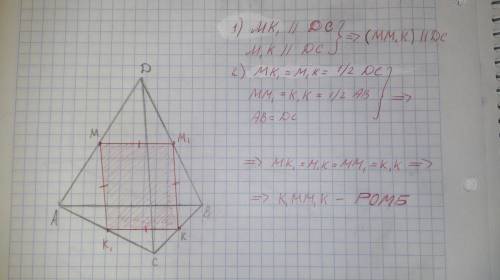 1) MK₁ // DC
M₁K // DC } => (MM₁K) // DC
2) MK₁ = M₁K = 1/2 DC
MM₁ = K₁K = 1/2 AB } =>
AB = DC
=> MK₁ = M₁K = MM₁ = K₁K =>
=> K₁MM₁K - РОМБ
D
M
M₁
A
B
K₁
K
C